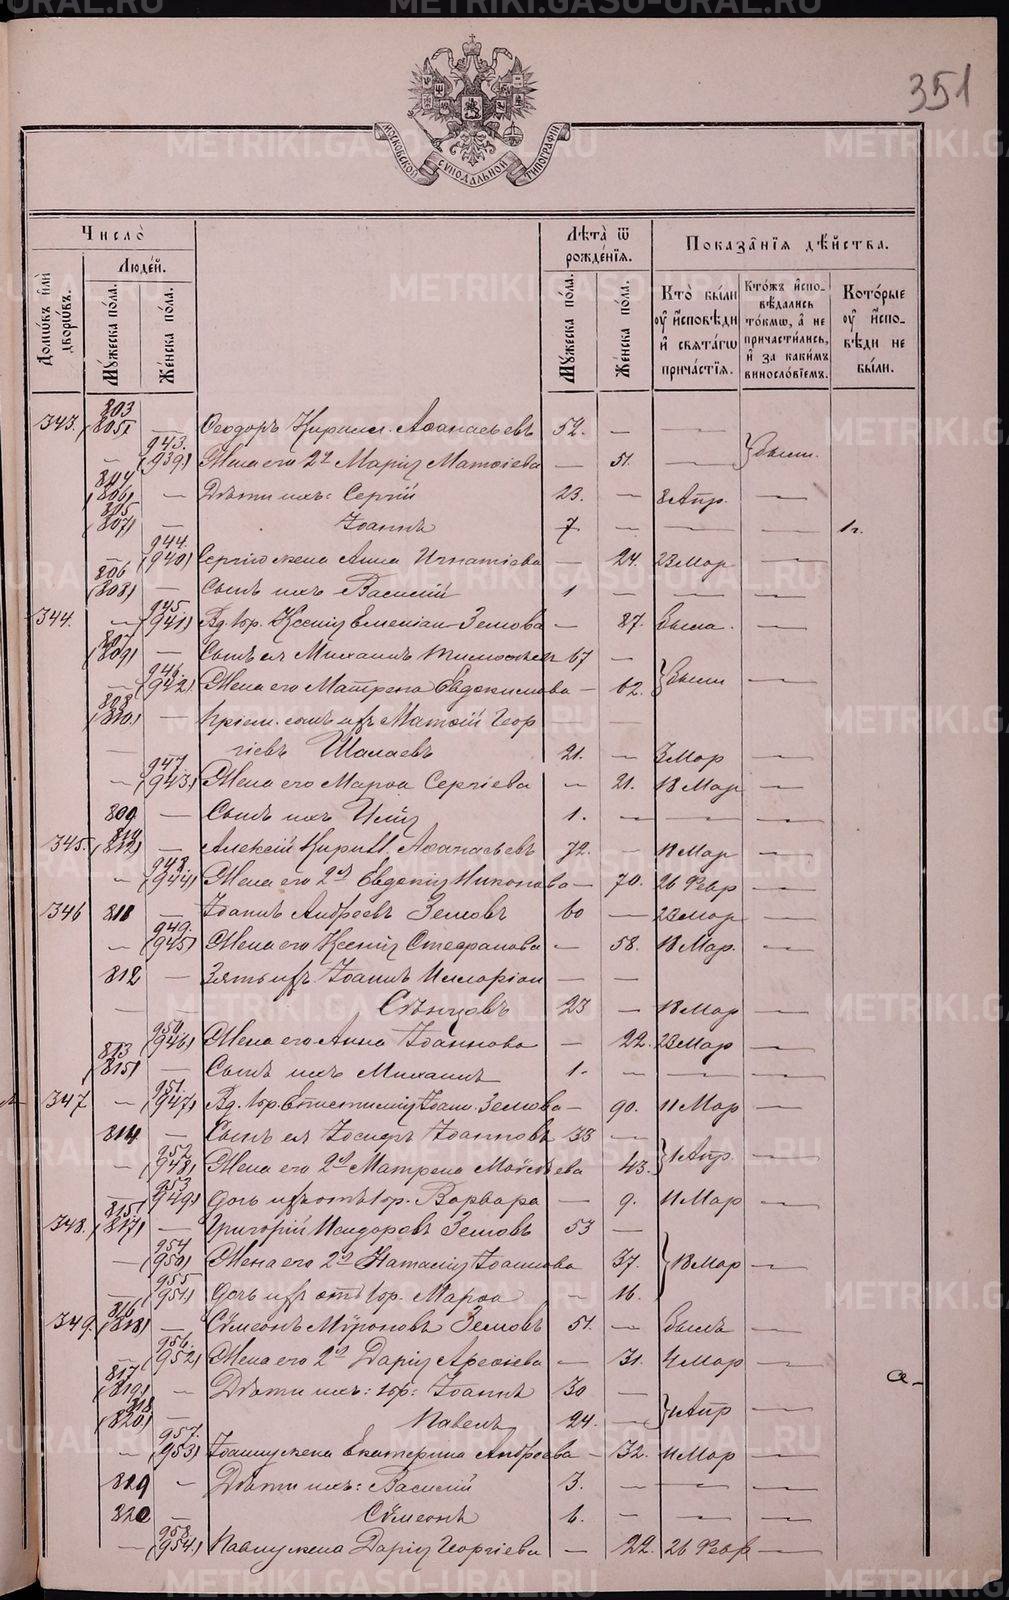 351
МОСКОВСКОЙ СѴНОДАЛЬНОЙ ТИПОГРАФІИ
Число̀
Домѡ́въ и҆лѝ дворѡ́въ.
Люде́й.
Мꙋ́жеска по́ла.
Же́нска по́ла.
Лѣ́та ѿ рожде́нїѧ.
Мꙋ́жеска по́ла.
Же́нска по́ла.
Показа̑нїѧ дѣ́йства.
Кто̀ бы́ли оу҆ и҆сповѣ́ди и҆ свѧта́гѡ прича́стїѧ.
Кто́жъ и҆сповѣ́дались то́кмѡ, а҆ не причасти́лись, и҆ за каки́мъ винослѡ́вїемъ.
Кото́рые оу҆ и҆спо-вѣ́ди не бы́ли.
343. 803 (805) — Ѳеодоръ Кирилл. Аѳанасьевъ 52. — —
— 943. (939) Жена его 2я Марія Матѳіева — 51. — } были.
804 (806) — Дѣти ихъ: Сергій 23. — 8 Апр. —
805 (807) — Іоаннъ 7 — — — 1г.
— 944. (940) Сергію жена Анна Игнатіева — 24. 23 Мар —
806 (808) — Сынъ ихъ Василій 1 — — —
344. — 945. (941) Вд. 1бр. Ксенія Емеліан. Земова — 87. была. —
807 (809) — Сынъ ея Михаилъ Тимоѳеев 67 —
— 946. (942) Жена его Матрена Евдокимова — 62. } были —
808 (810) — Пріем. сынъ ихъ Матѳій Геор — —
— гіевъ Шалаевъ 21. — 3 Мар —
— 947. (943) Жена его Марѳа Сергіева — 21. 18 Мар —
809 — Сынъ ихъ Илія 1. — — —
345. 810 (812) — Алексій Кирилл. Аѳанасьевъ 72. — 11 Мар —
— 948. (944) Жена его 2я Евдокія Никонова — 70. 26 Февр —
346 811 — Іоаннъ Андреевъ Земовъ 60 — 23 Мар —
— 949. (945) Жена его Ксенія Стефанова — 58. 18 Мар. —
812 — Зять ихъ Іоаннъ Илларіон — —
Сѣнцовъ 23 — 18 Мар —
— 950. (946) Жена его Анна Іоаннова — 22. 23 Мар —
813 (815) — Сынъ ихъ Михаилъ 1. — — —
347 — 951. (947) Вд. 1бр. Епистимія Іоан. Земова — 90. 11 Мар —
814 — Сынъ ея Іосифъ Іоанновъ 33 —
— 952. (948) Жена его 2я Матрена Моѵсеева — 43. } 1 Апр. —
— 953 (949) Дочь ихъ отъ 1бр. Варвара — 9. 11 Мар —
348. 815 (817) — Григорій Исидоровъ Земовъ 53 —
— 954 (950) Жена его 2я Наталія Іоаннова 37. } 18 Мар —
— 955 (951) Дочь ихъ отъ 1бр. Марѳа — 16.
349. 816 (818) — Сѵмеонъ Мѵроновъ Земовъ 51. — былъ —
— 956. (952) Жена его 2я Дарія Арефіева — 31. 4 Мар —
817 (819) — Дѣти ихъ: 1бр: Іоаннъ 30 —
818 (820) — Павелъ 24. — } 1 Апр —
— 957. (953) Іоанну жена Екатерина Андреева — 32. 11 Мар —
819 — Дѣти ихъ: Василій 3. — — —
820 — Сѵмеонъ 6. — — —
— 958. (954) Павлу жена Дарія Георгіева — 22. 26 Февр —
METRIKI.GASO-URAL.RU